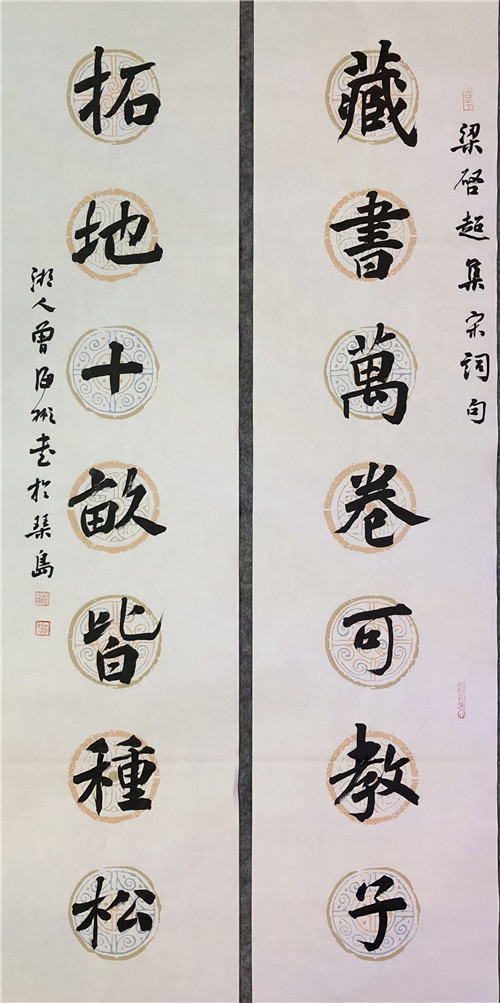 梁啓超集宋詞句
藏書萬卷可教子
拓地十畝皆種松
湘人曾海彬書於琴島